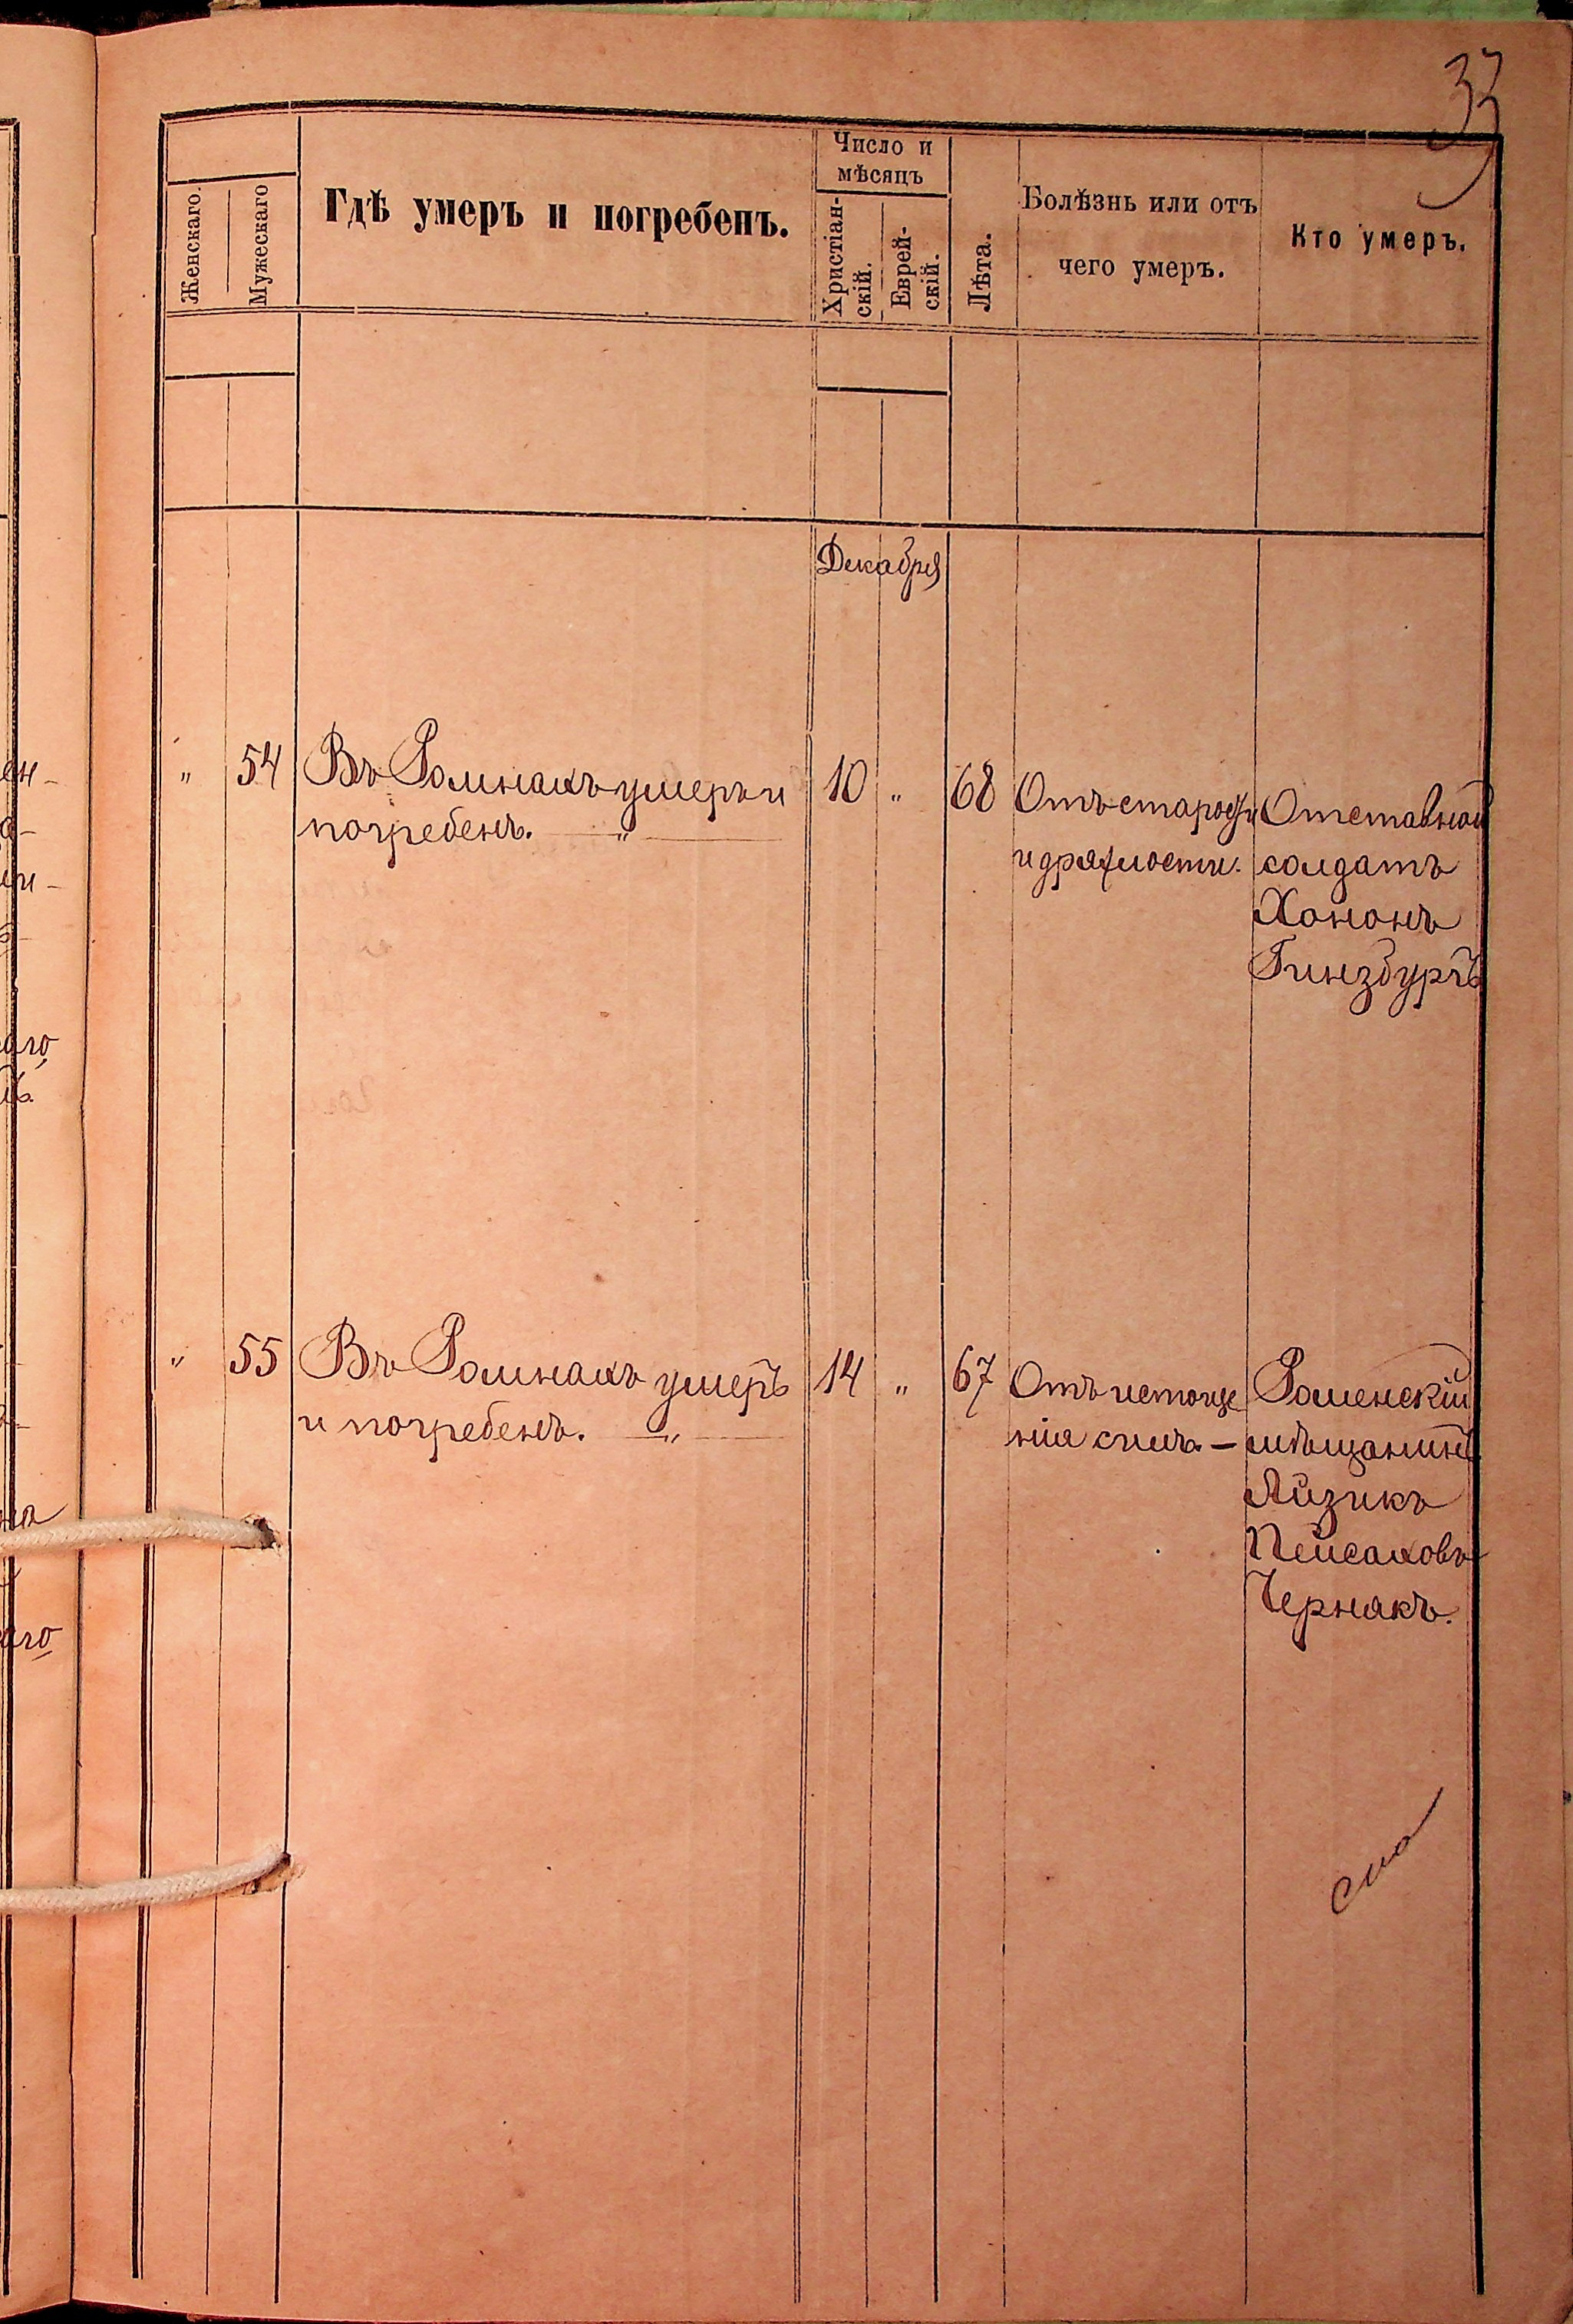 33
Женскаго.
Мужескаго
Гдѣ умеръ и погребенъ.
Число и
мѣсяцъ
Христіан-
скій.
Еврей-
скій.
Лѣта.
Болѣзнь или отъ
чего умеръ.
Кто умеръ.
Декабря
" 54 Въ Ромнахъ умеръ и 10 " 68 Отъ старости Отставной
погребенъ. — " — и дряхлости. солдатъ
Хононъ
Гинзбургъ
" 55 Въ Ромнахъ умеръ 14 " 67 Отъ истоще Роменскій
и погребенъ. — " — нія силъ. — мѣщанинъ
Айзикъ
Пейсаховъ
Чернякъ.
ен-
а-
аго
на
аго